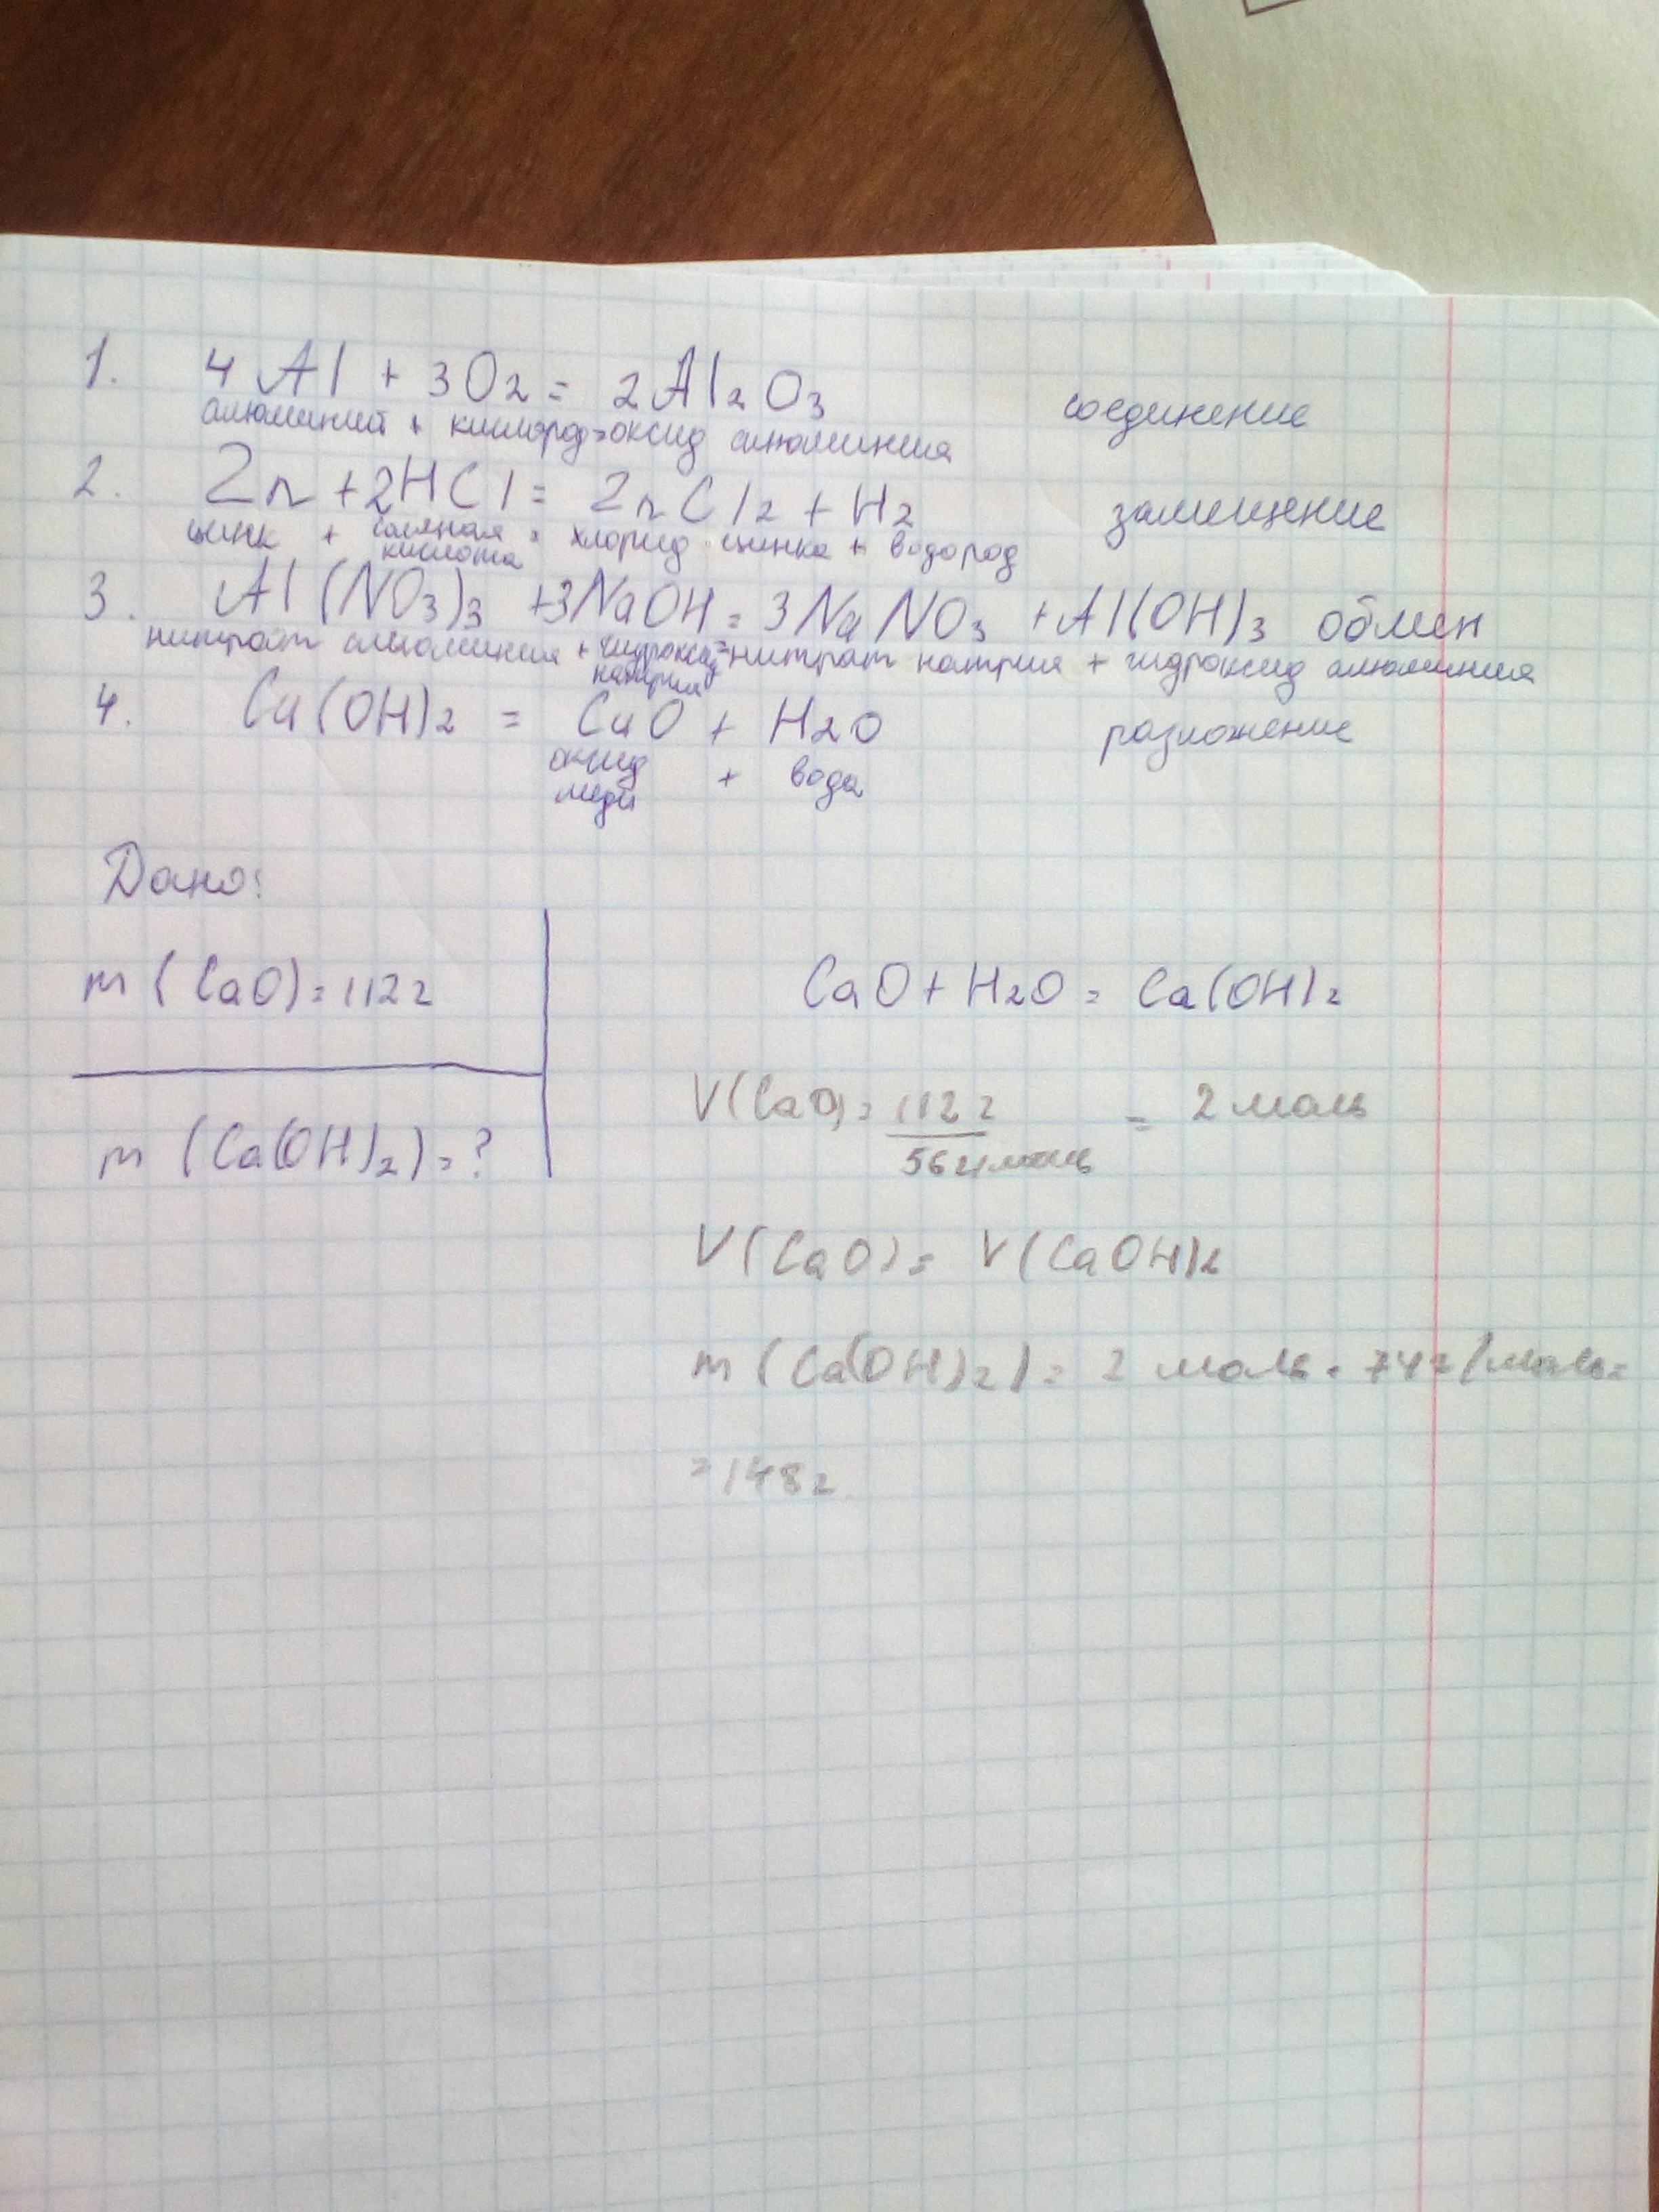 1. 4Al + 3O2 = 2Al2O3 соединение
алюминий + кислород = оксид алюминия
2. Zn + 2HCl = ZnCl2 + H2 замещение
цинк + соляная кислота = хлорид цинка + водород
3. Al(NO3)3 + 3NaOH = 3NaNO3 + Al(OH)3 обмен
нитрат алюминия + гидроксид натрия = нитрат натрия + гидроксид алюминия
4. Cu(OH)2 = CuO + H2O разложение
оксид меди + вода
Дано:
m(CaO) = 112г
m(Ca(OH)2) = ?
CaO + H2O = Ca(OH)2
V(CaO) = 112г / 56г/моль = 2 моль
V(CaO) = V(CaOH)2
m(Ca(OH)2) = 2 моль · 74г/моль =
= 148г